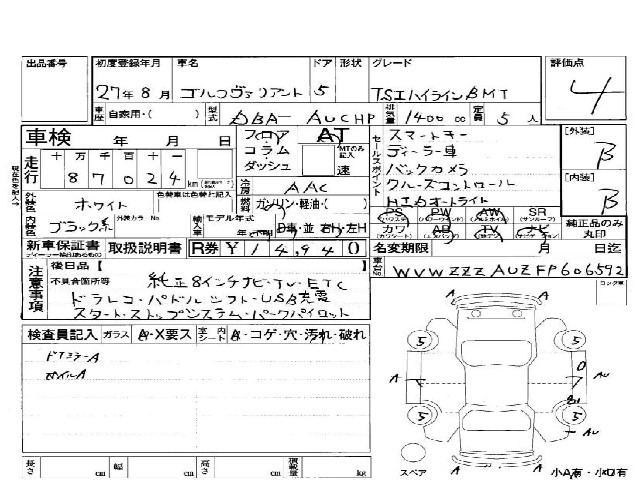 出品番号 初度登録年月 車名 ドア 形状 グレード 評価点
27年8月 ゴルフヴァリアント 5 TSIハイラインBMT 4
車歴 自家用・( ) 型式 DBA- AUCHP 排気量 1400 定員 5人
車検 年 月 日 フロア コラム ダッシュ AT MTのみ記入 速
走行 十万千百十一 87024 km
セールスポイント スマートキー
ディーラー車
バックカメラ
クルーズコントロール
HIDオートライト
[外装] B
[内装] B
外装色 ホワイト 色替車は色替と記入
冷房 AAC
燃料 ガソリン・軽油・( )
内装色 ブラック系 外装カラーNo 輸入車 モデル年式 年 D車・並 右H・左H
PS PW AW SR
カワ AB TV ナビ
純正品のみ丸印
新車保証書 取扱説明書 R券 ¥14,940 名変期限 月 日迄
注意事項 後日品【 】
不具合箇所等 純正8インチナビ・TV・ETC
ドラレコ・パドルシフト・USB充電
スタート・ストップシステム・パークパイロット
車台No WVWZZZAUZFP606592
検査員記入 ガラス A・X要ス 室内シート A・コゲ・穴・汚れ・破れ
ドアミラーA
ホイルA
5 5
A A AU
5 5
AU
A A
スペア 小A有・小U有
長さ cm 幅 cm 高さ cm 積載量 kg